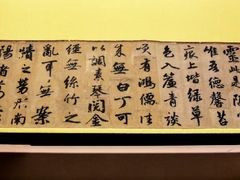 靈斯是陋
惟吾德馨苔
痕上堦綠草
色入簾青談
笑有鴻儒往
來無白丁可
以調素琴閱金
經無絲竹之
亂耳無案
牘之勞形南
陽諸葛